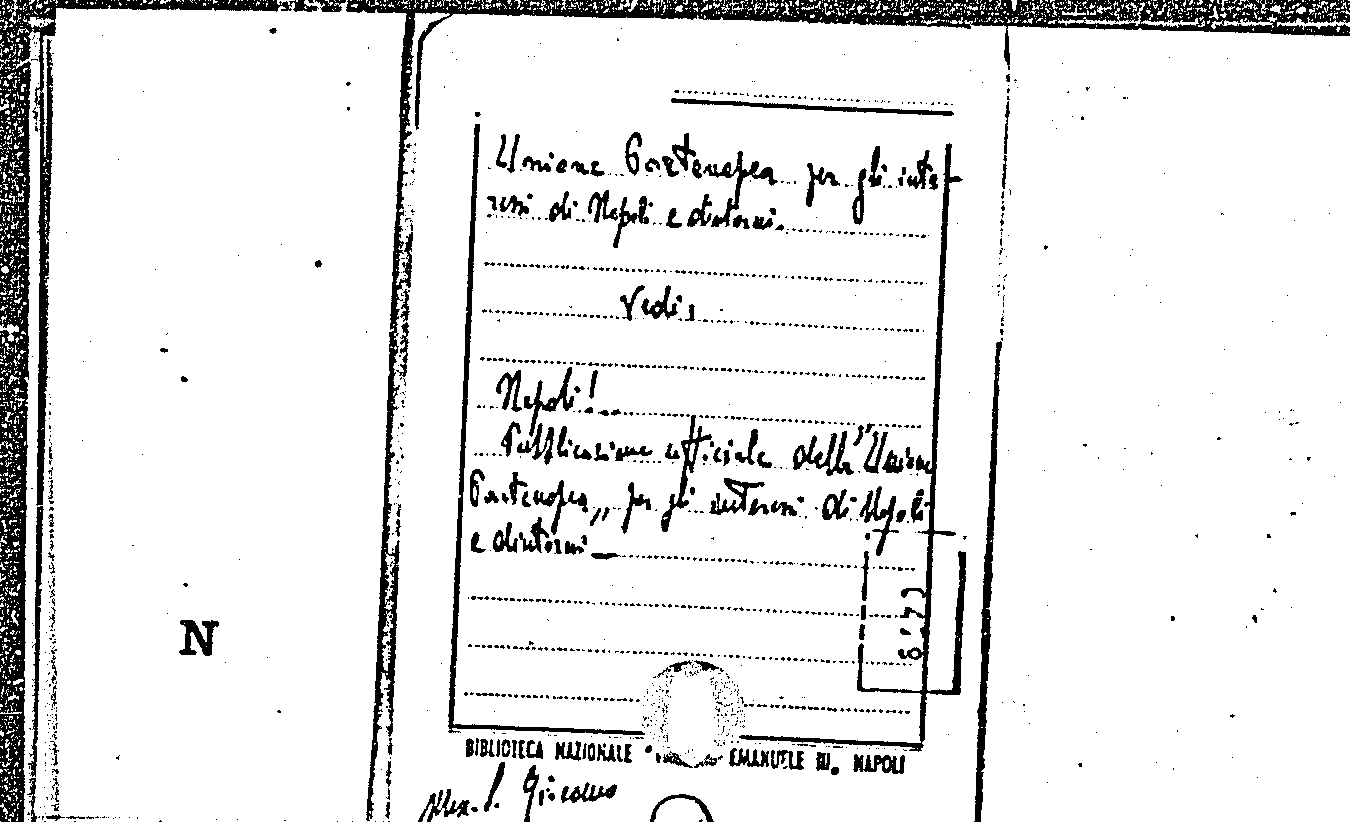 Unione Partenopea per gli inte-
ressi di Napoli e dintorni.
Vedi:
Napoli!...
Pubblicazione ufficiale della "Unione
Partenopea" per gli interessi di Napoli
e dintorni
N
BIBLIOTECA NAZIONALE EMANUELE III. NAPOLI
Giacomo